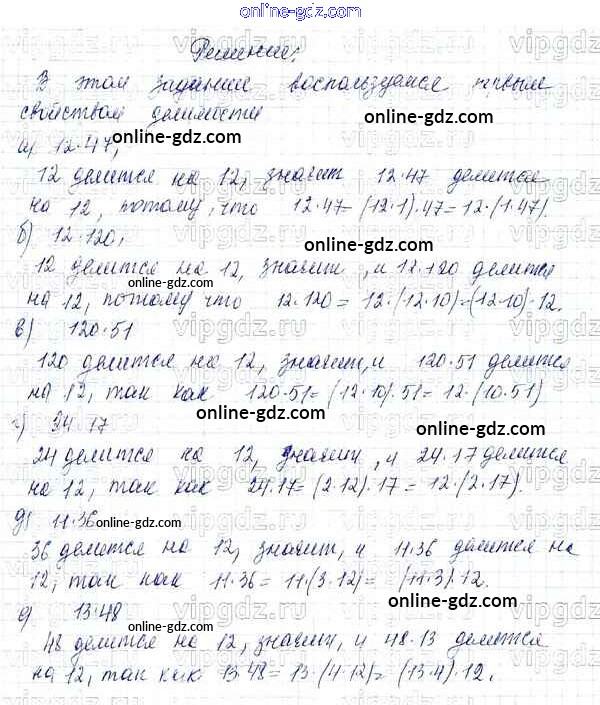 online-gdz.com
Решение:
В этом задании воспользуемся первым
свойством делимости
online-gdz.com
а) 12·47;
12 делится на 12, значит 12·47 делится
на 12, потому, что 12·47=(12·1)·47=12·(1·47).
б) 12·120; online-gdz.com
12 делится на 12, значит, и 12·120 делится
на 12, потому что 12·120 = 12·(12·10)=(12·10)·12.
в) 120·51 online-gdz.com
120 делится на 12, значит, и 120·51 делится
на 12, так как 120·51=(12·10)·51=12·(10·51)
г) 34·17 online-gdz.com
24 делится на 12, значит, и 24·17 делится
на 12, так как 24·17=(2·12)·17=12·(2·17).
д) 11·36 online-gdz.com
36 делится на 12, значит, и 11·36 делится на
12, так как 11·36=11·(3·12)=(11·3)·12.
е) 13·48 online-gdz.com
48 делится на 12, значит, и 48·13 делится
на 12, так как 13·48=13·(4·12)=(13·4)·12.
online-gdz.com